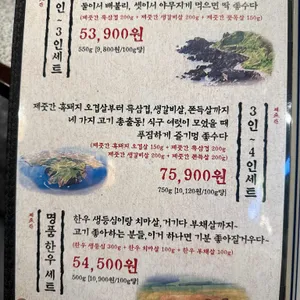 둘이서 배불리, 셋이서 야무지게 먹으면 딱 좋수다
(제줏간 흑삼겹 200g + 제줏간 생갈비살 200g + 제줏간 쫀득살 150g)
인 - 3인세트
53,900원
550g [9,800원/100g당]
제줏간 흑돼지 오겹살부터 흑삼겹, 생갈비살, 쫀득살까지
네 가지 고기 총출동! 식구 여럿이 모였을 때
푸짐하게 즐기멍 좋수다
(제줏간 흑돼지 오겹살 150g + 제줏간 흑삼겹 200g
+ 제줏간 생갈비살 200g + 제줏간 쫀득살 200g)
3인 - 4인세트
75,900원
750g [10,120원/100g당]
명품한우세트
한우 생등심이랑 치마살, 거기다 부채살까지~
고기 좋아하는 분들, 이거 하나면 기분 좋아질거우다~
(한우 생등심 300g + 한우 치마살 100g + 한우 부채살 100g)
54,500원
500g [10,900원/100g당]